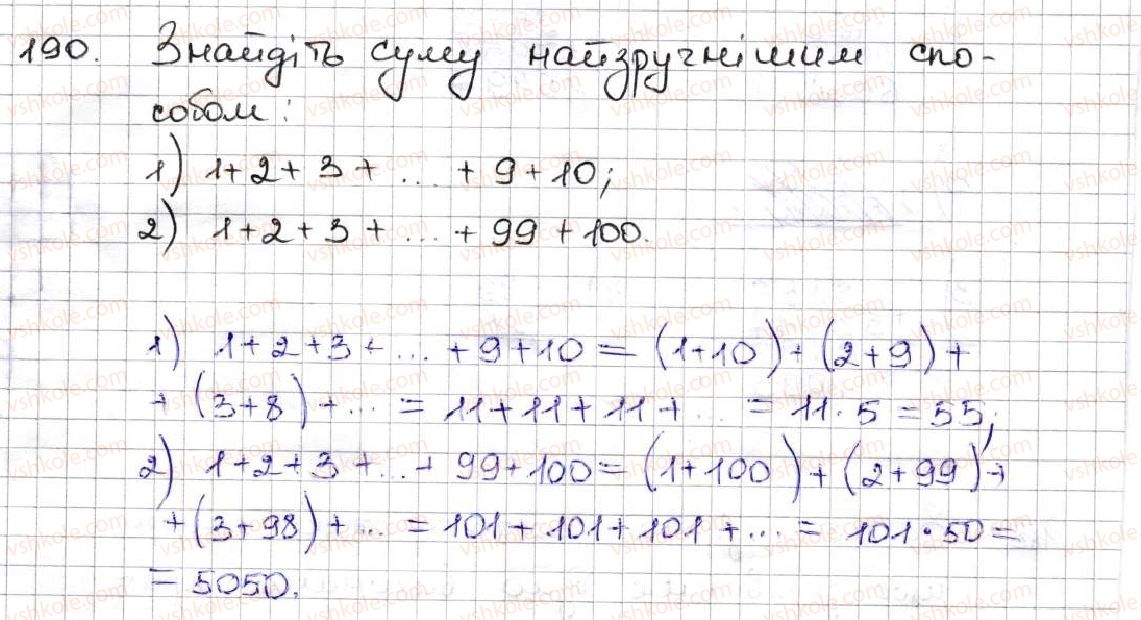 190. Знайдіть суму найзручнішим спо-
собом:
1) 1+2+3+ ... +9+10;
2) 1+2+3+ ... +99+100.
1) 1+2+3+ ... +9+10=(1+10)+(2+9)+
+(3+8)+... =11+11+11+... =11·5=55;
2) 1+2+3+...+99+100=(1+100)+(2+99)+
+(3+98)+... =101+101+101+... =101·50=
=5050.